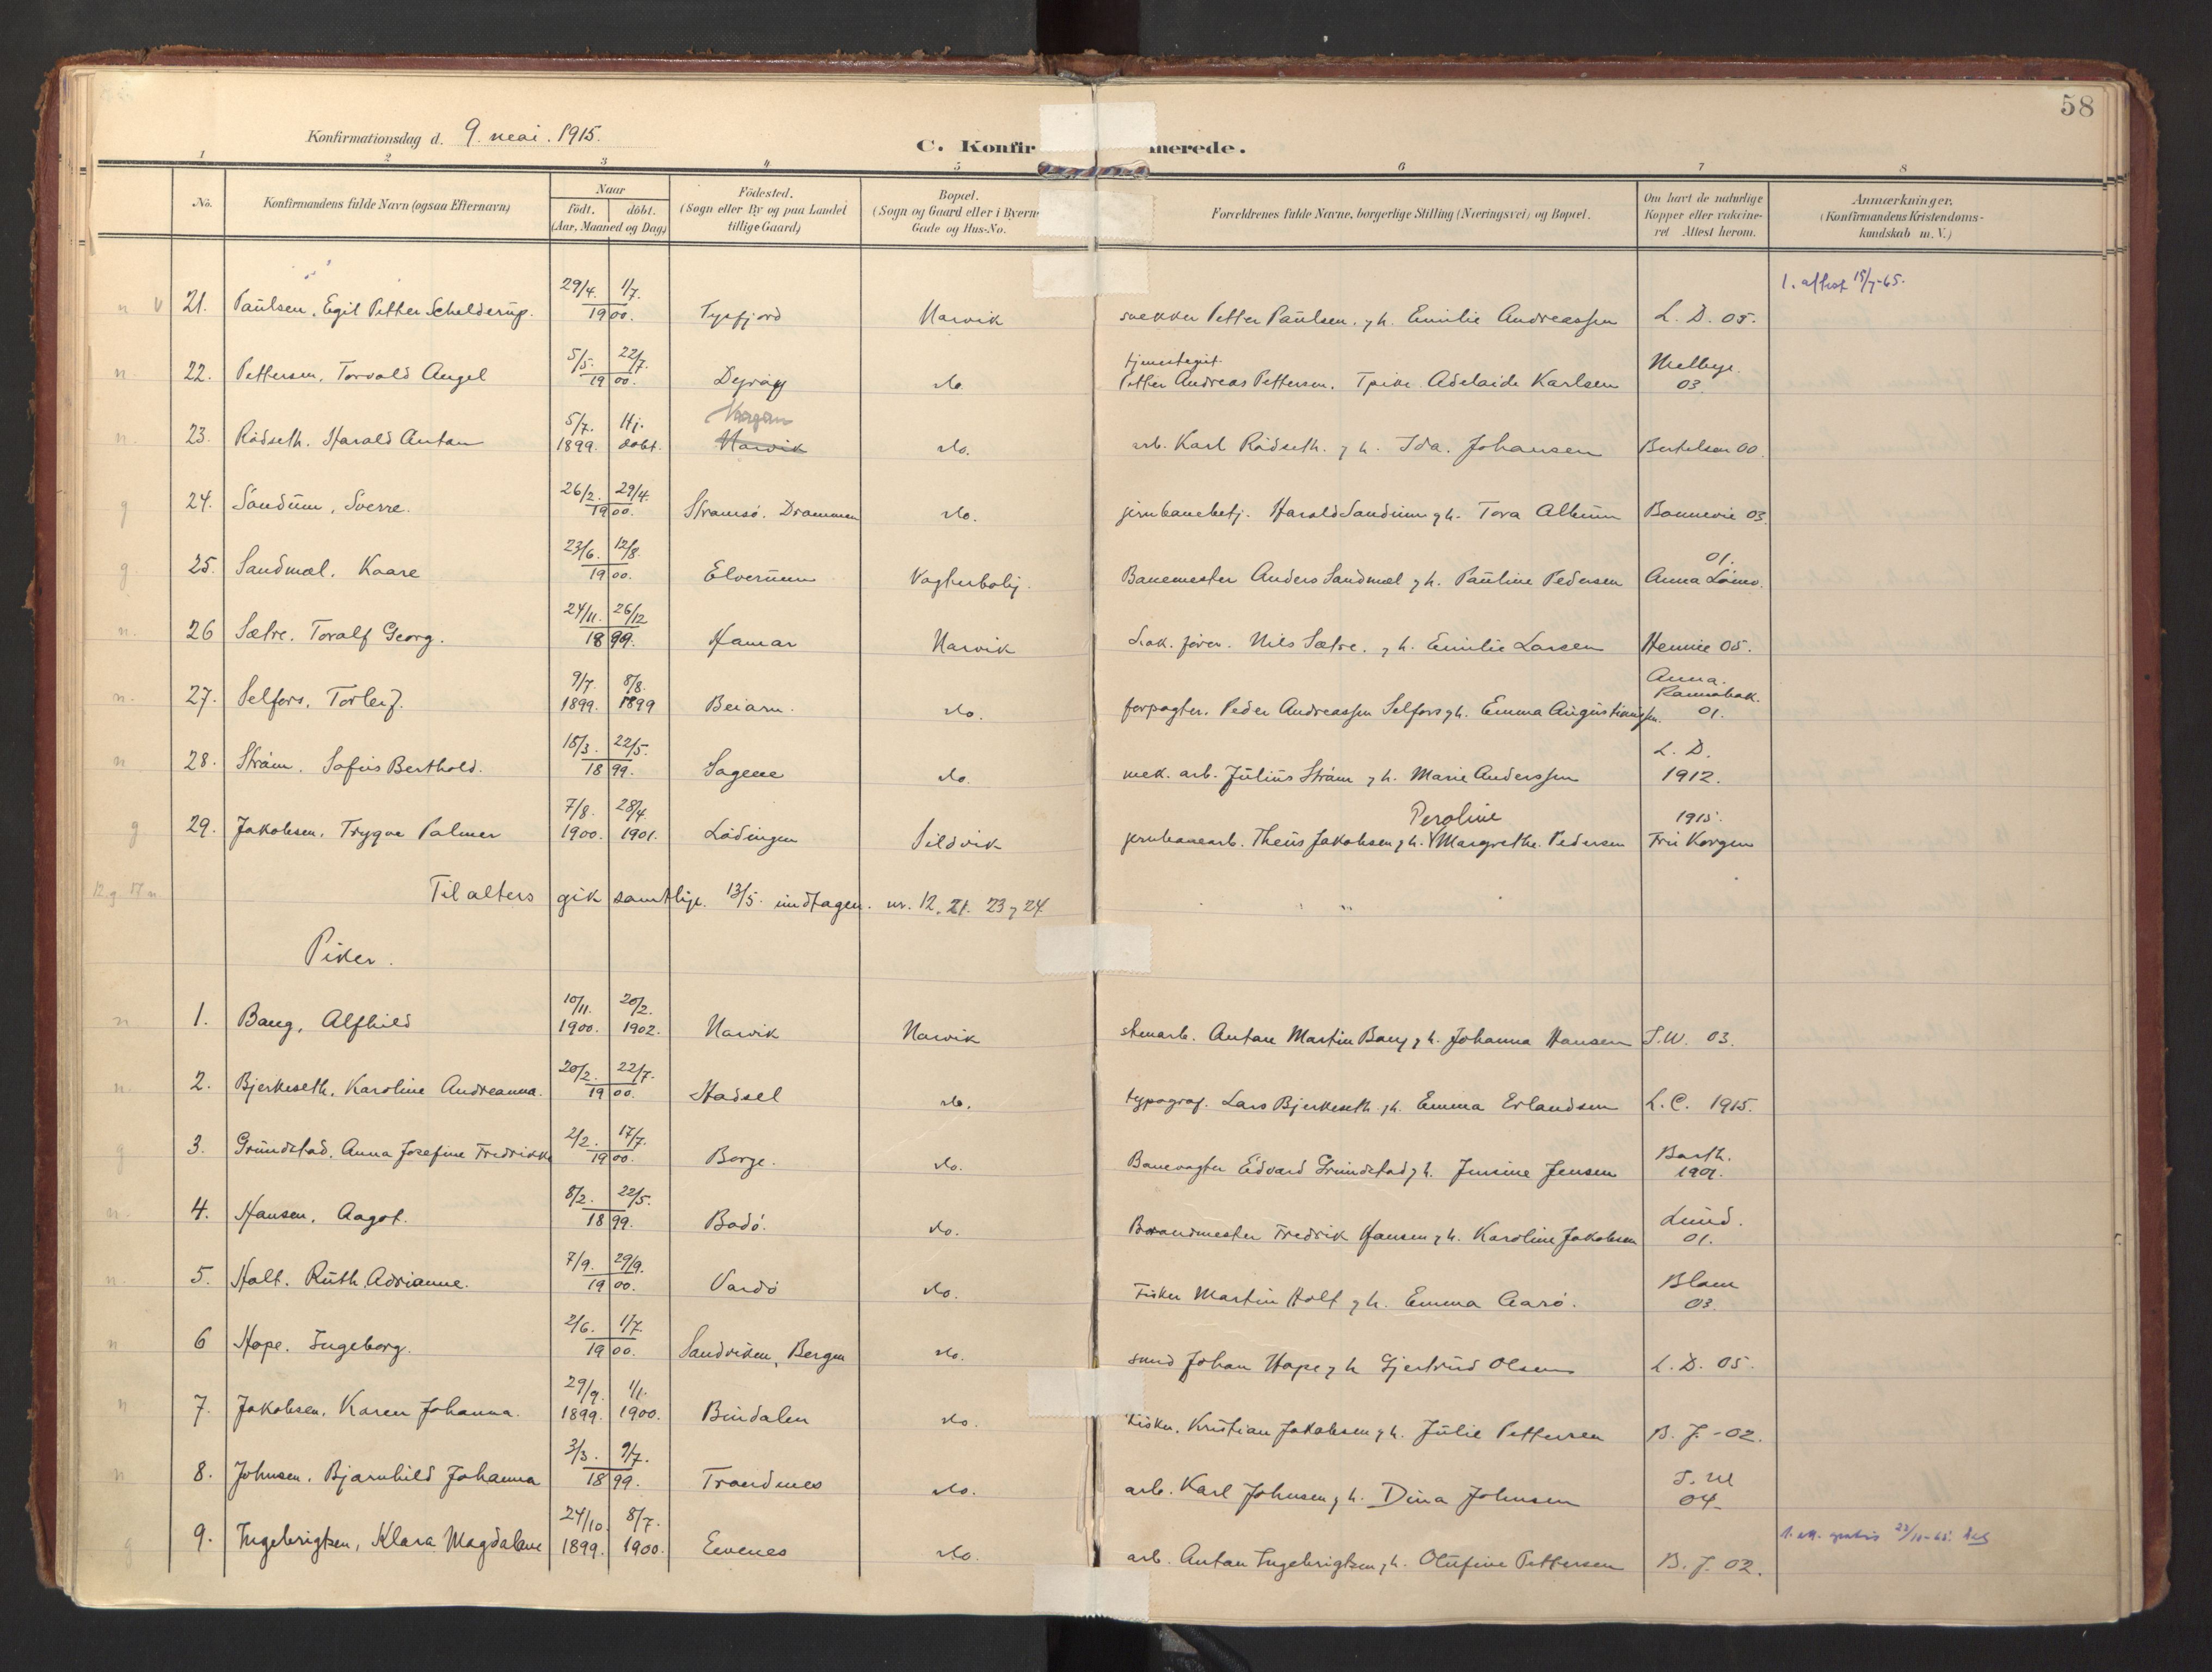 58
Konfirmationsdag d. 9. mai. 1915.
C. Konfir merede.
1 2 3 4 5 6 7 8
No.
Konfirmandens fulde Navn (ogsaa Efternavn)
Naar
født. døbt.
(Aar, Maaned og Dag)
Fødested.
(Sogn eller By og paa Landet
tillige Gaard)
Bopæl.
(Sogn og Gaard eller i Byerne
Gade og Hus-No.
Forældrenes fulde Navne, borgerlige Stilling (Næringsvei) og Bopæl.
Om havt de naturlige
Kopper eller vakcine-
ret Attest herom.
Anmærkninger.
(Konfirmandens Kristendoms-
kundskab m. V.)
n V 21. Paulsen, Egil Petter Schelderup. 29/4. 1/7. 1900. Tysfjord Narvik snekker Petter Paulsen. g h. Emilie Andreassen L. D. 05. 1. attest 15/7-65.
n. 22. Pettersen, Torvald Angel 5/5. 22/7. 1900. Dyrøy do. tjenestegut. Petter Andreas Pettersen. Tpike Adelaide Karlsen Melbye. 03
n. 23. Rødseth. Harald Anton 5/7. 1899. Hj. døbt. Narvik do. arb. Karl Rødseth. g h. Ida. Johansen Bertelsen 00.
g 24. Sandum, Sverre. 26/2. 29/4. 1900. Strømsø. Drammen do. jernbanebetj. Harald Sandum g h. Tora Album Bonnevie 03.
g. 25. Sandmæl, Kaare 23/6. 12/8. 1900. Elverum Vogterbolig. Banemester Anders Sandmæl g h. Pauline Pedersen 01. Anna
n. 26 Sætre. Toralf Georg. 24/11. 26/12 1899. Hamar Narvik Lok. fører. Nils Sætre. g h. Emilie Larsen Hennie 05.
n. 27. Selfors, Torleif. 9/7. 1899. 8/8. 1899 Beiarn. do. forpagter. Peder Andreassen Selfors g h. Emma Augustinussen. Anna. 01.
n 28. Strøm. Sofus Berthold. 15/3. 22/5. 1899. Sagene do. mek. arb. Julius Strøm g h. Marie Anderssen L. D. 1912.
g 29. Jakobsen, Trygve Palmer 7/8. 1900. 28/4. 1901. Lødingen Sildvik jernbanearb. Theus Jakobsen g h. Peroline Margrethe. Pedersen 1915. Fru Korgen
12 g 17 n. Til alters gik samtlige. 13/5. undtagen. nr. 12, 21. 23 g 24
Piker.
n 1. Bang, Alfhild 10/11. 1900. 20/2. 1902. Narvik Narvik stenarb. Anton Martin Bang g h. Johanna Hansen S.W. 03.
n. 2. Bjerkeseth, Karoline Andreanna. 20/2. 22/7. 1900. Hadsel do. typograf. Lars Bjerkeseth g h. Emma Erlandsen L.C. 1915.
g 3. Grundstad, Anna Josefine Fredrikke 2/2. 17/7. 1900. Borge. do. Banevogter Edvard Grundstad g h. Jensine Jensen Barth. 1901.
n. 4. Hansen, Aagot. 8/2. 22/5. 1899. Bodø. do. Brandmester Fredrik Hansen g h. Karoline Jakobsen Lund. 01.
n. 5. Holt. Ruth Adrianne. 7/9. 29/9. 1900. Vardø do. Fisker Martin Holt g h. Emma Aarø. Blom 03.
n 6 Hope. Ingeborg. 2/6. 1/7. 1900. Sandviken, Bergen do. smed Johan Hope g h Gjertrud Olsen L. D. 05.
n 7. Jakobsen, Karen Johanna. 29/9. 1899. 1/1. 1900. Bindalen do. Fisker. Kristian Jakobsen g h. Julie Pettersen B. J. -02.
n 8. Johnsen, Bjarnhild Johanna 3/3. 9/7. 1899. Trondenes do. arb. Karl Johnsen g h. Dina Johnsen 04.
g 9. Ingebrigtsen, Klara Magdalene 24/10. 1899. 8/7. 1900. Evenes do. arb. Anton Ingebrigtsen g h. Olufine Pettersen B. J. 02.